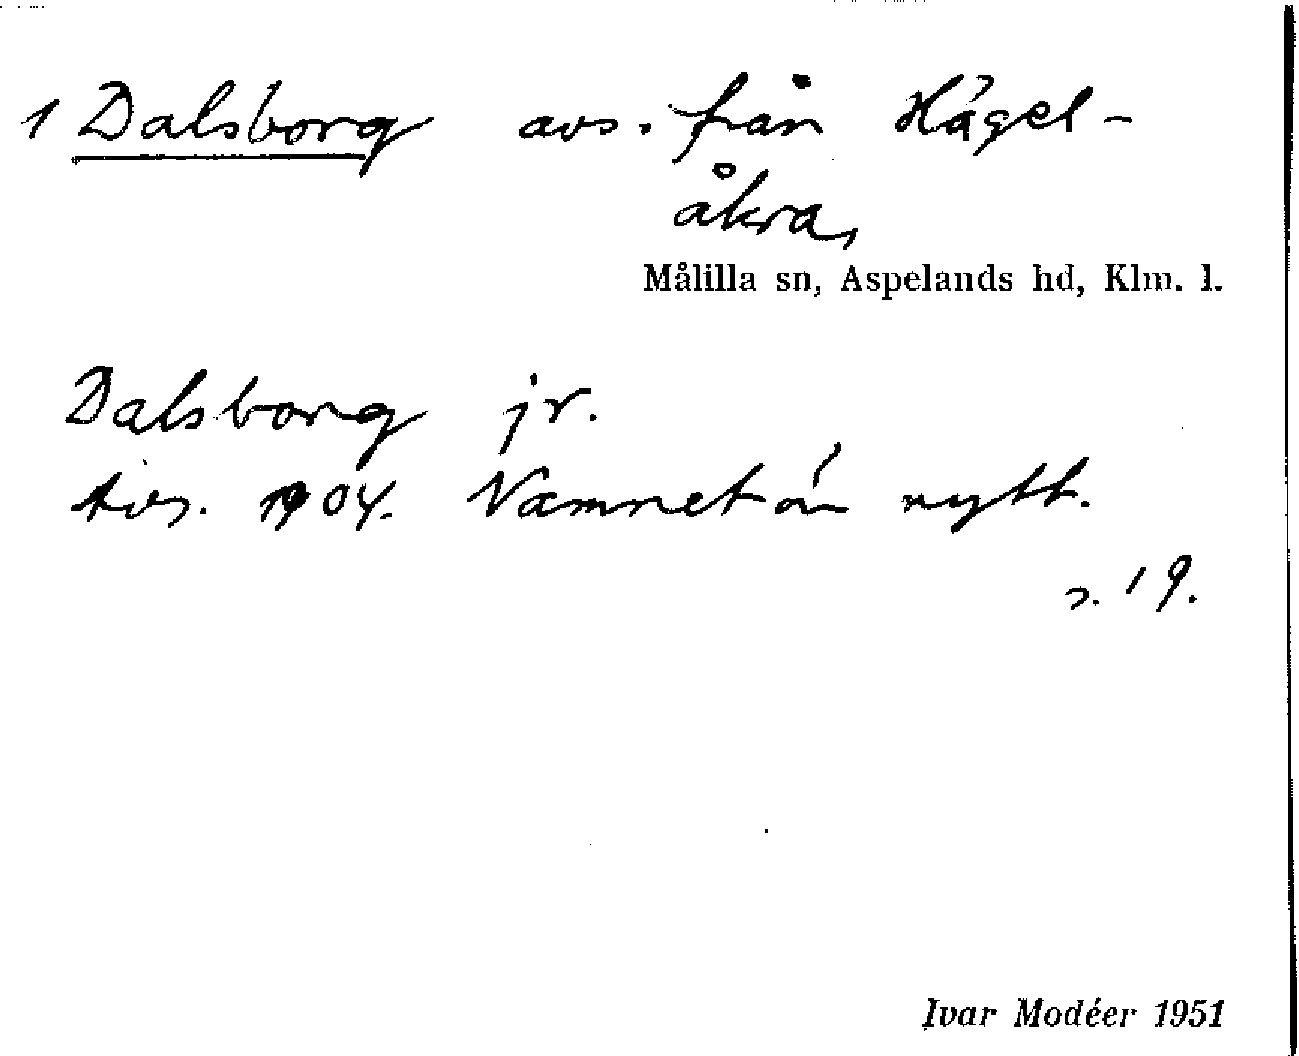 1 Dalsborg avs. från Hägel-
åkra,
Målilla sn, Aspelands hd, Klm. l.
Dalsborg jr.
Avs. 1904. Namnet är nytt.
s. 19.
Ivar Modéer 1951